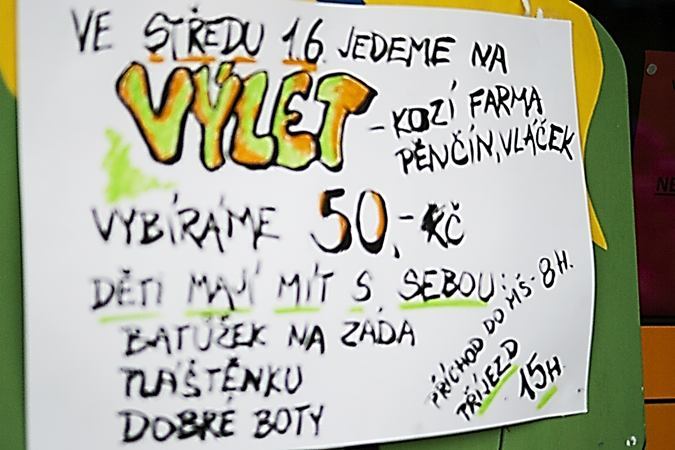 VE STŘEDU 1.6. JEDEME NA
VÝLET - KOZÍ FARMA
PĚNČÍN, VLÁČEK
VYBÍRÁME 50,- KČ
DĚTI MAJÍ MÍT S SEBOU:
BATŮŽEK NA ZÁDA
PLÁŠTĚNKU
DOBRÉ BOTY
PŘÍCHOD DO MŠ - 8 H.
PŘÍJEZD 15H